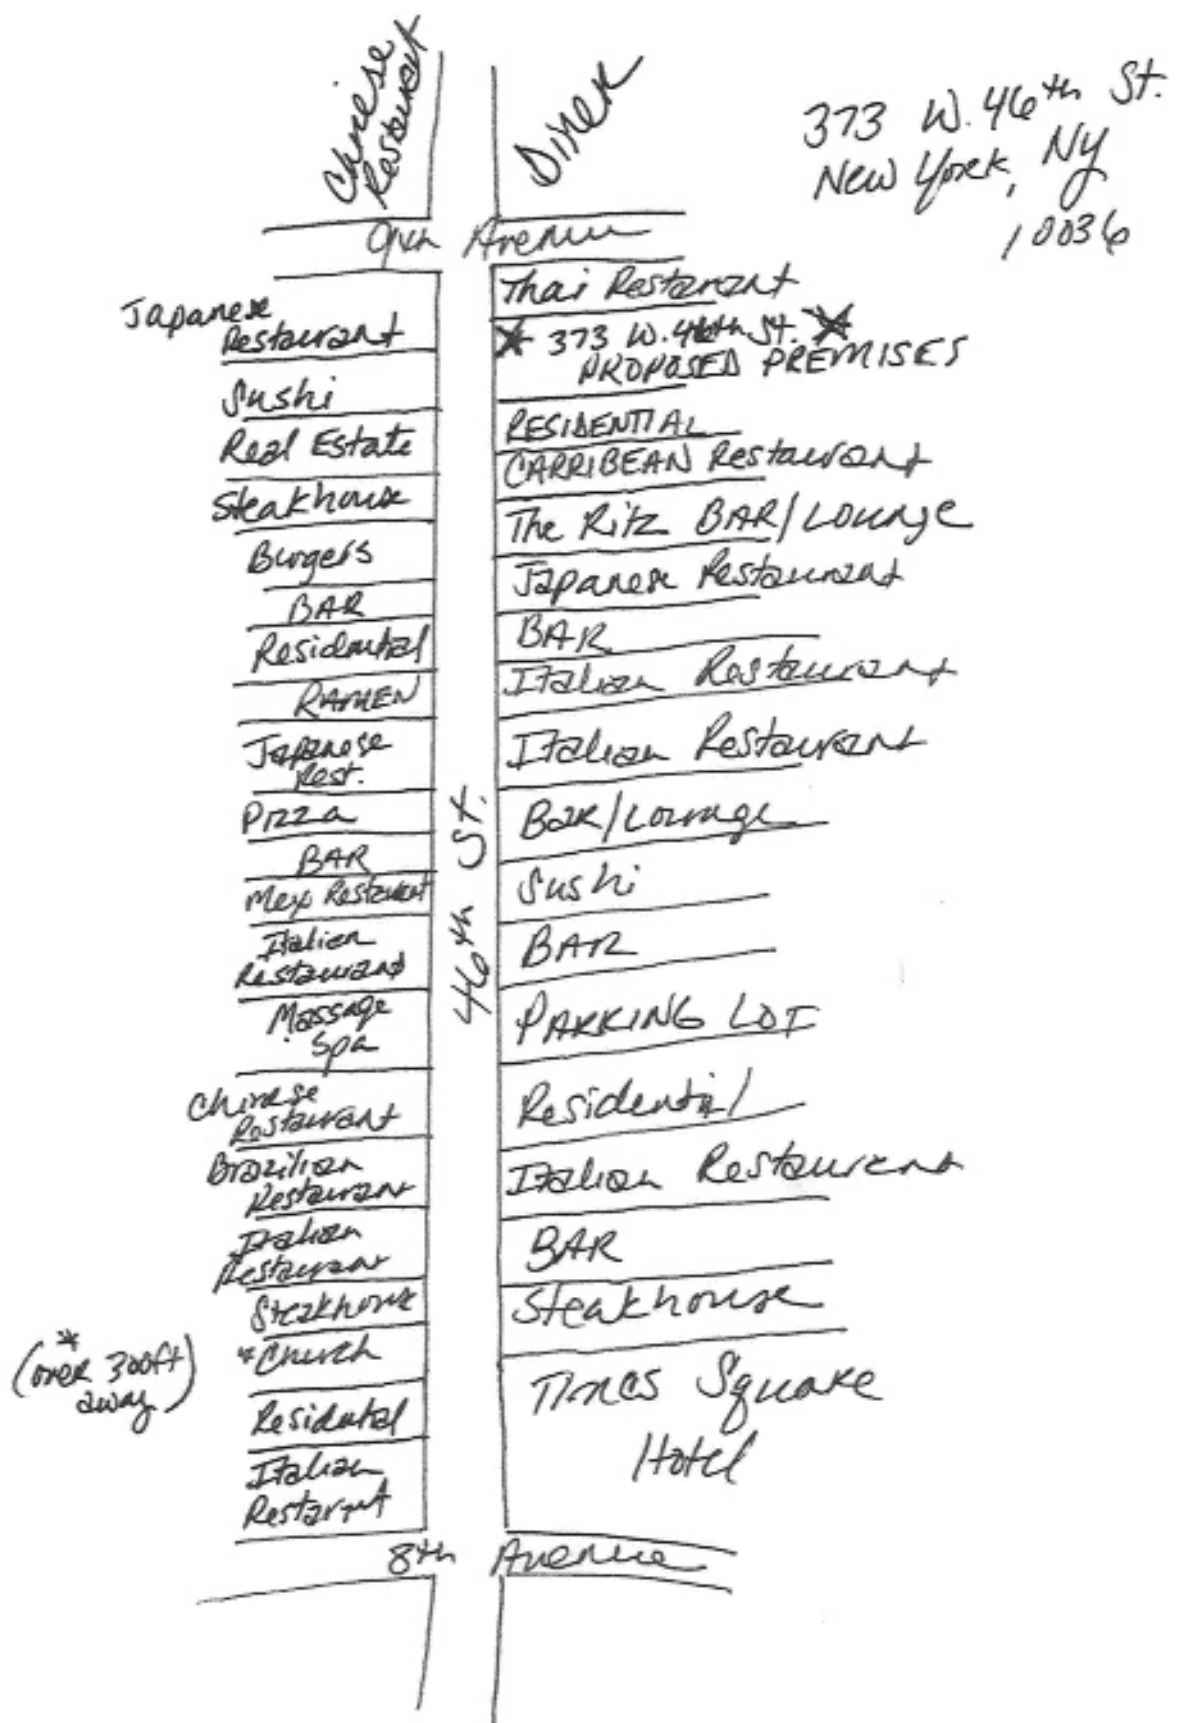 Chinese
Restaurant
Diner
373 W. 46th St.
New York, NY
10036
9th Avenue
Japanese
Restaurant
Sushi
Real Estate
Steakhouse
Burgers
BAR
Residential
RAMEN
Japanese
Rest.
Pizza
BAR
Mex Restaurant
Italian
Restaurant
Massage
Spa
Chinese
Restaurant
Brazilian
Restaurant
Italian
Restaurant
Steakhouse
*Church
*
(over 300ft
away)
Residental
Italian
Restarnt
46th St.
Thai Restarant
* 373 W. 46th St. *
PROPOSED PREMISES
RESIDENTIAL
CARRIBEAN Restaurant
The Ritz BAR/LOUNGE
Japanese Restaurant
BAR
Italian Restaurant
Italian Restaurant
Bar/Lounge
Sushi
BAR
PARKING LOT
Residential
Italian Restaurant
BAR
Steakhouse
Times Square
Hotel
8th Avenue